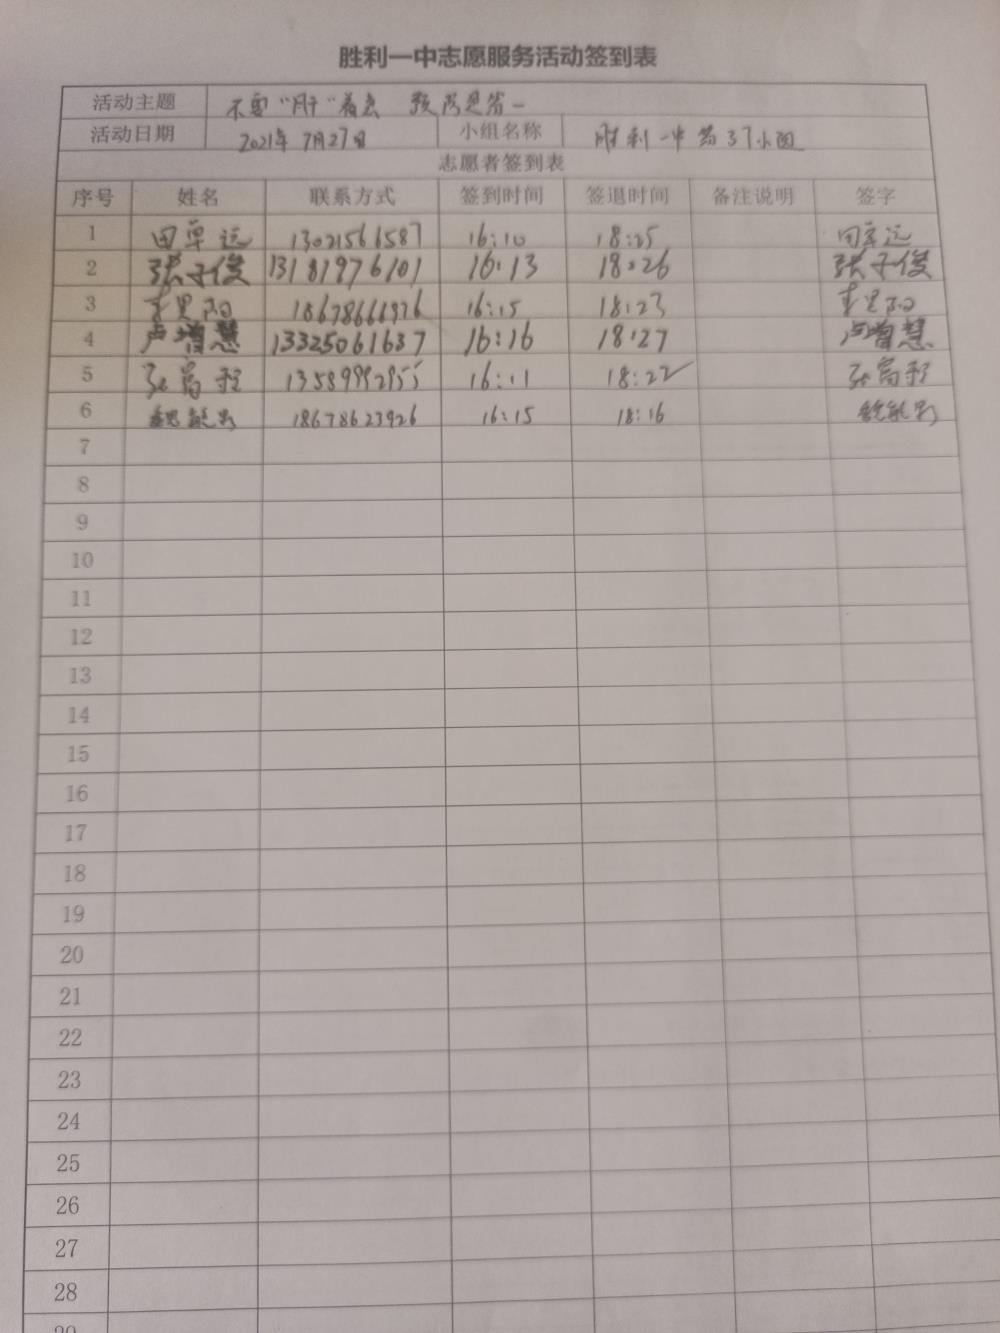 胜利一中志愿服务活动签到表
活动主题 不要“肝”着急
活动日期 2021年7月27日 小组名称 胜利一中第37小组
志愿者签到表
序号 姓名 联系方式 签到时间 签退时间 备注说明 签字
1 田卓远 13021566587 16:10 18:25 田卓远
2 张子俊 13181976101 16:13 18:26 张子俊
3 18678666926 16:15 18:23
4 卢增慧 13325061637 16:16 18:27 卢增慧
5 张富程 13589992955 16:11 18:22 张富程
6 18678623926 16:15 18:16
7
8
9
10
11
12
13
14
15
16
17
18
19
20
21
22
23
24
25
26
27
28
29